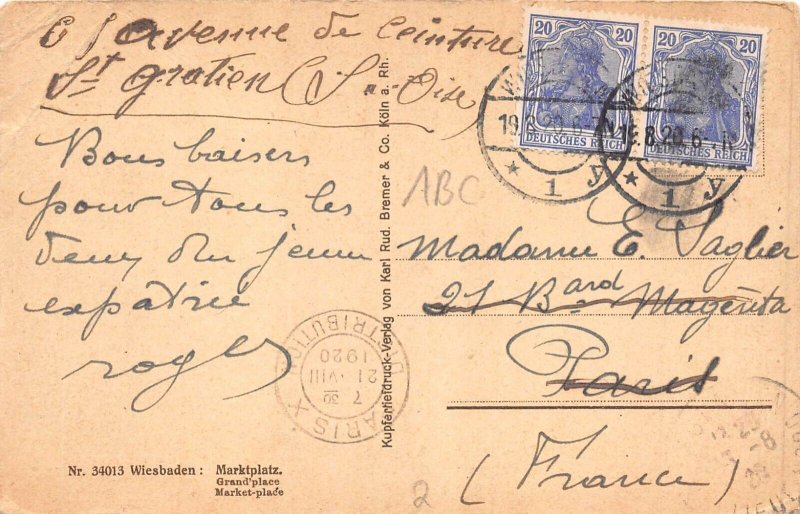 61 avenue de Ceinture
St Gratien (S. Oise)
Bons baisers
pour tous les
deux du jeune
expatrié
roger
ABC
Madame E. Saglier
21 Bard Magenta
Paris
(France)
20 20
DEUTSCHES REICH
20 20
DEUTSCHES REICH
19.8.20.6-7N
* 1 y
8.20.6
* 1 y
PARIS X
DISTRIBUTION
7 30
21 VIII
1920
Kupfertiefdruck-Verlag von Karl Rud. Bremer & Co. Köln a. Rh.
Nr. 34013 Wiesbaden: Marktplatz.
Grand'place
Market-place
2